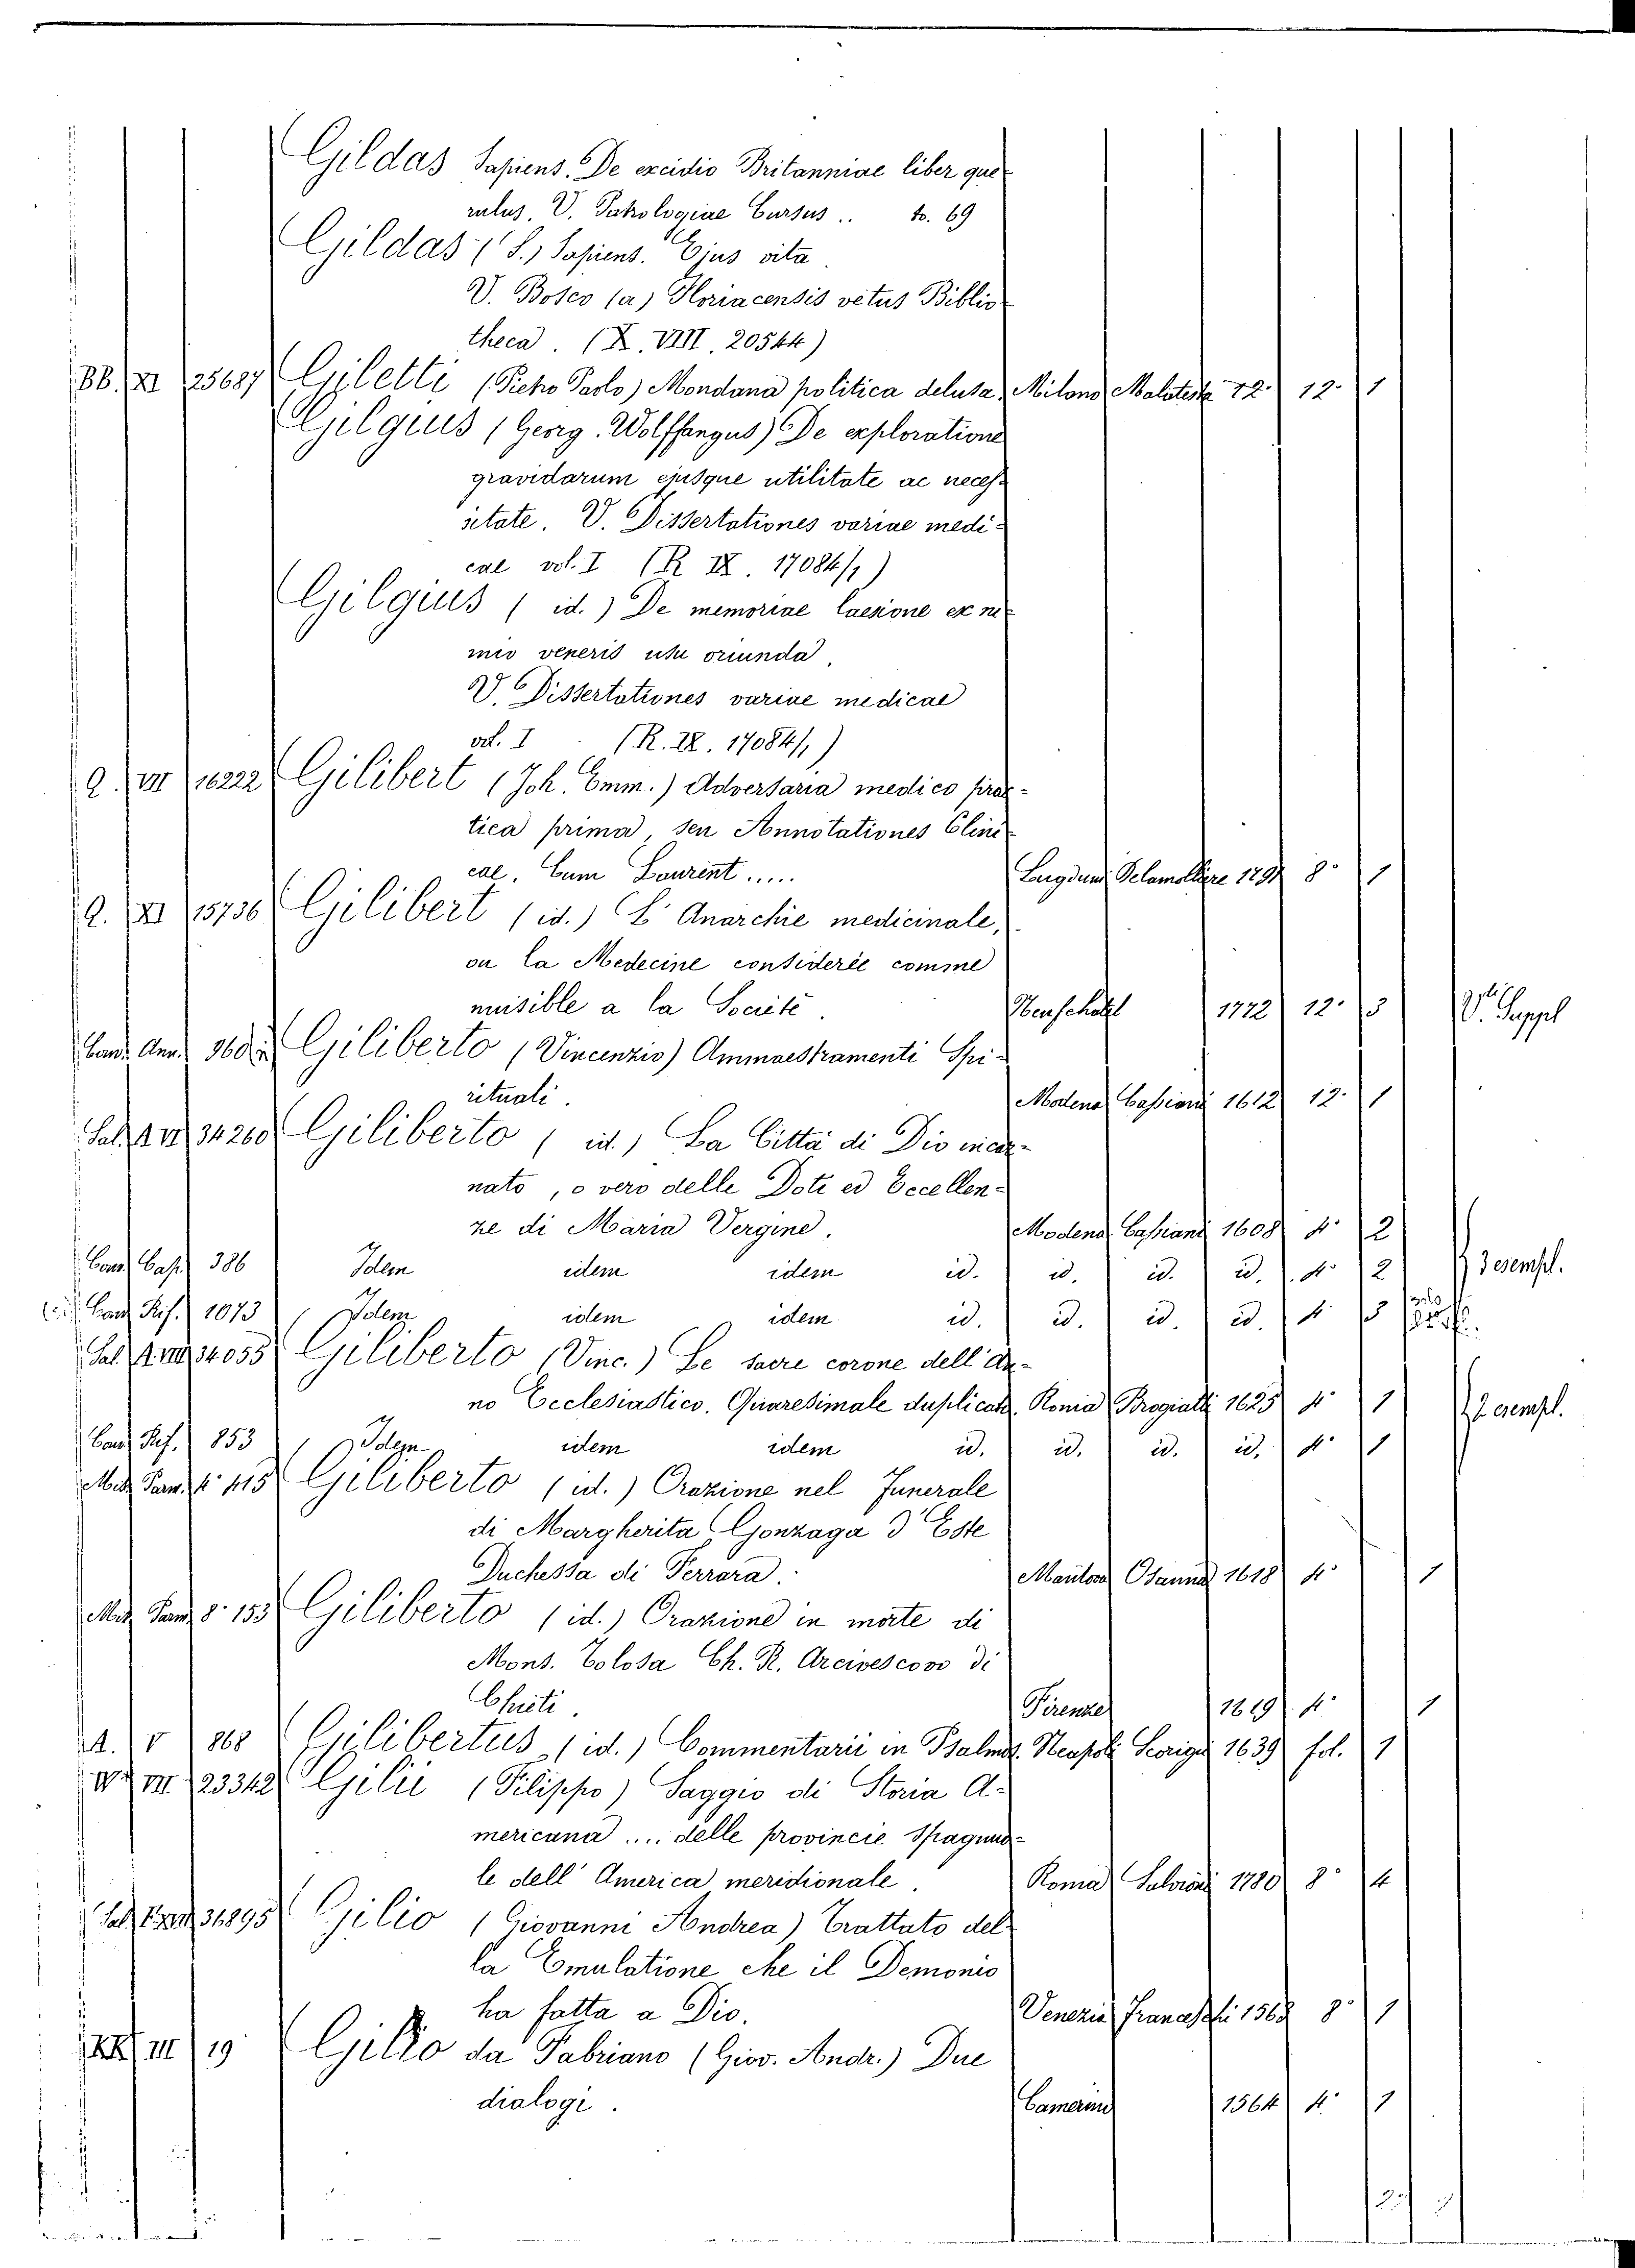 Gildas Sapiens. De excidio Britanniae liber que-
rulus. V. Patrologiae Cursus .. to. 69
Gildas (S.) Sapiens. Ejus vita.
V. Bosco (a) Floriacensis vetus Biblio-
theca. (X. VIII. 20544)
BB. XI 25687 Giletti (Pietro Paolo) Mondana politica delusa. Milano Malatesta 12. 12° 1
Gilgius (Georg. Wolffangus) De exploratione
gravidarum ejusque utilitate ac neces-
sitate. V. Dissertationes variae medi-
cae vol. I. (R IX. 17084/1)
Gilgius (id.) De memoriae laesione ex ni-
mio veneris usu oriunda.
V. Dissertationes variae medicae
vol. I (R. IX. 17084/1)
Q. VII 16222 Gilibert (Joh. Emm.) Adversaria medico prac-
tica prima, seu Annotationes Clini-
cae. Cum Laurent ..... Lugduni Delamolliere 1791 8° 1
Q. XI 15736 Gilibert (id.) L'Anarchie medicinale,
ou la Medecine considerée comme
nuisible a la Societé. Neuschatel 1772 12° 3 V. Suppl
Cand. Ann. 360 Giliberto (Vincenzio) Ammaestramenti Spi-
rituali. Modena Cassiani 1612 12° 1
34260 Giliberto (id.) La Città di Dio incar-
nato, o vero delle Doti ed Eccellen-
ze di Maria Vergine. Modena Cassiani 1608 4° 2
Cand. Cap. 386 Idem idem idem id. id. id. id. 4° 2 3 esempl.
Cand. Rif. 1073 Idem idem idem id. id. id. id. 4°
34055 Giliberto (Vinc.) Le sacre corone dell'an-
no Ecclesiastico. Quaresimale duplicato. Roma Brogiatti 1625 4° 1 2 esempl.
Cand. Rif. 853 Idem idem idem id. id. id. id. 4° 1
415 Giliberto (id.) Orazione nel Funerale
di Margherita Gonzaga d'Este
Duchessa di Ferrara. Mantova Osanna 1618 4° 1
8° 153 Giliberto (id.) Orazione in morte di
Mons. Tolosa Ch. R. Arcivescovo di
Chieti. Firenze 1619 4° 1
A. V 868 Gilibertus (id.) Commentarii in Psalmos. Neapoli Scorigii 1639 fol. 1
VIII 23342 Gilii (Filippo) Saggio di Storia A-
mericana .... delle provincie Spagnuo-
le dell'America meridionale. Roma Salvioni 1780 8° 4
36895 Gilio (Giovanni Andrea) Trattato del-
la Emulatione che il Demonio
ha fatta a Dio. Venezia Franceschi 1563 8° 1
III 19 Gilio da Fabriano (Giov. Andr.) Due
dialogi. Camerino 1564 4° 1